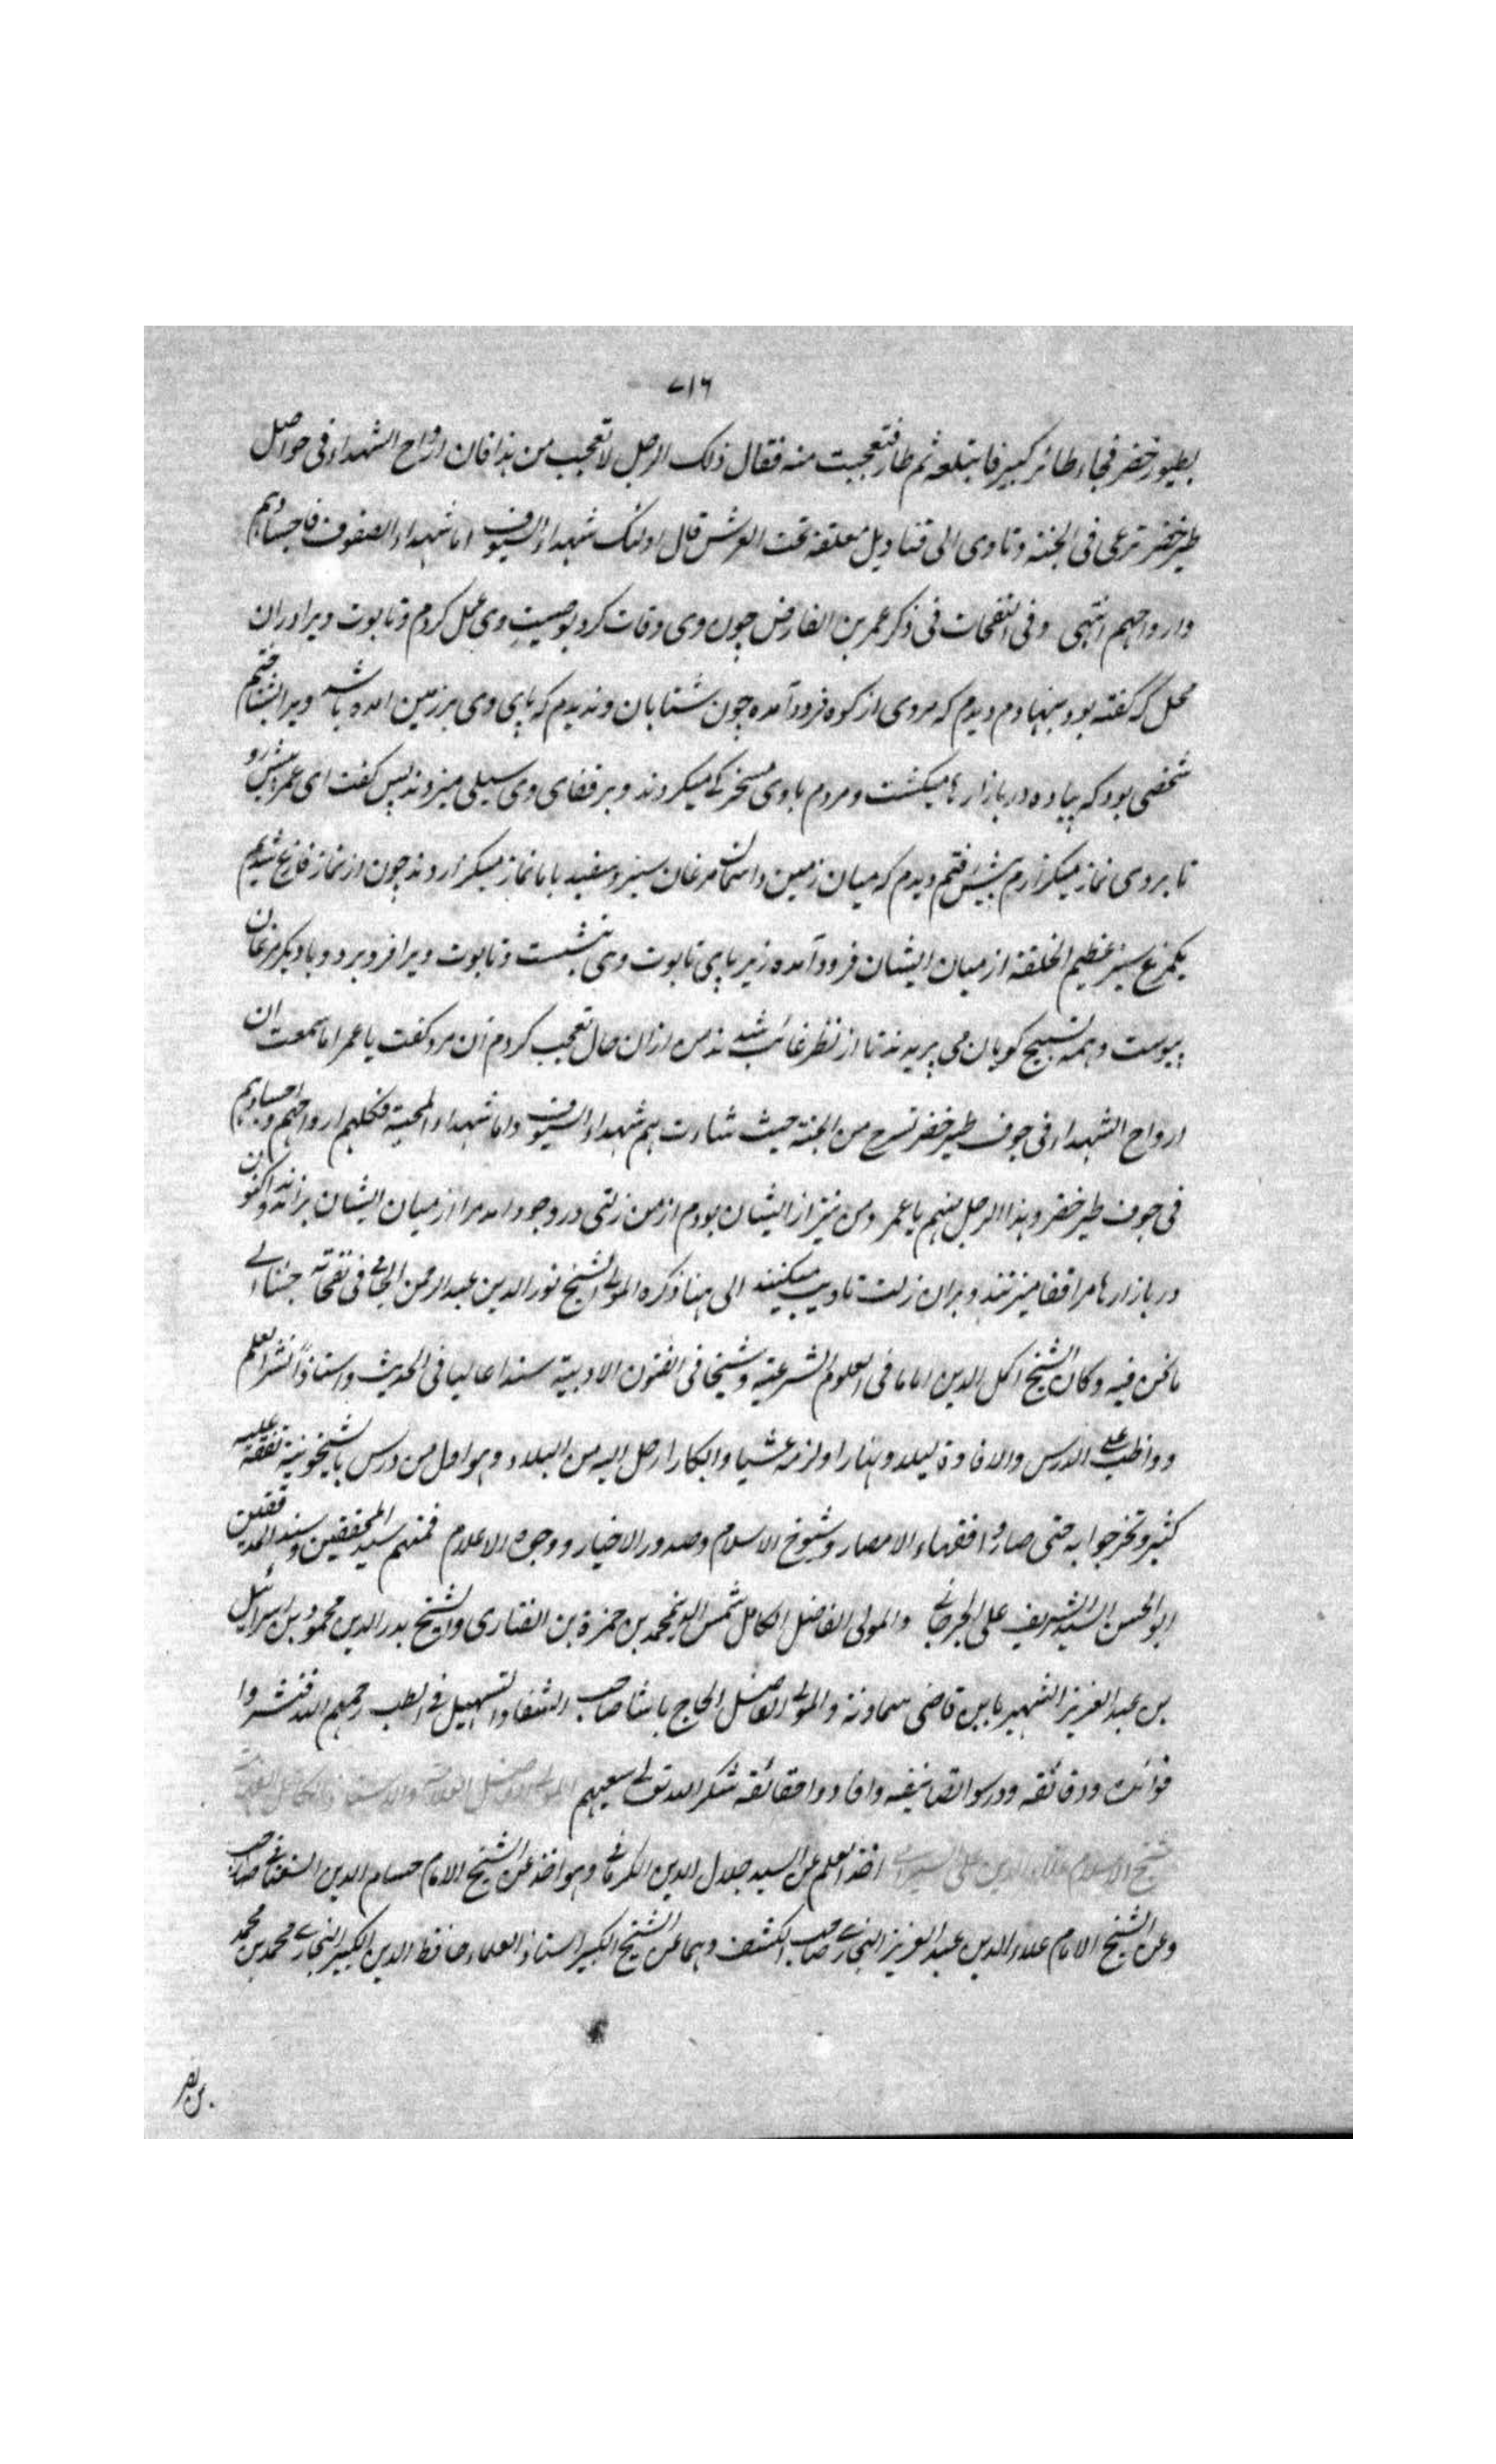 ٧١٦
بطیور خضر فجاء طائر کبیر فابتلعه ثم طار فتعجبت منه فقال ذلک الرجل لا تعجب من هذا فان ارواح الشهداء فی حواصل
طیر خضر ترعی فی الجنة وتاوی الی قنادیل معلقة تحت العرش قال اولئک شهداء السیوف اما شهداء الصفوف فاجسادهم
وارواحهم انتهی وفی النفحات فی ذکر عمر بن الفارض چون وی وفات کرد بوصیت وی عمل کردم وتابوت ویرا دران
محل که گفته بود بنهادم دیدم که مردی از کوه فرود آمده چون شتابان وندیدم که پای وی بر زمین امده باشد ویرا بشناختم
شخصی بود که پیاده در بازارها میکشت ومردم با وی مسخرکی میکردند وبر قفای وی سیلی میزدند پس کفت ای عمر پیش رو
تا بروی نماز میکزارم پیش رفتم دیدم که میان زمین واسمان مرغان سبز وسفید با ما نماز میکزاردند چون از نماز فارغ شدیم
یکمرغ سبز عظیم الخلقة از میان ایشان فرود آمده زیر پای تابوت وی بنشست وتابوت ویرا فرو برد وبا دیکر مرغان
پیوست وهمه تسبیح کویان می پریدند تا از نظر غائب شدند من ازان حال تعجب کردم آن مرد کفت یا عمر اما سمعت ان
ارواح الشهداء فی جوف طیر خضر تسرح من الجنة حیث شاءت هم شهداء السیوف واما شهداء المحبة فکلهم ارواحهم واجسادهم
فی جوف طیر خضر وهذا الرجل منهم یا عمر ومن نیز از ایشان بودم از من زلتی در وجود امد مرا از میان ایشان براندند واکنون
در بازارها مرا قفا میزنند وبران زلت تادیب میکنند الی هنا ذکره المولی الشیخ نور الدین عبد الرحمن الجامی فی نفحاته جئنا الی
ما نحن فیه وکان الشیخ اکمل الدین اماما فی العلوم الشرعیة وشیخا فی الفنون الادبیة سندا عالیا فی الحدیث واستاذا نشر العلم
وواظب علی الدرس والافادة لیلا ونهارا ولزمه عشیا وابکارا رحل الیه من البلاد وهو اول من درس بالشیخونیة تفقه علیه
کثیر وتخرجوا به حتی صاروا فقهاء الامصار وشیوخ الاسلام وصدور الاخیار ووجوه الاعلام فمنهم سید المحققین وسند المدققین
ابو الحسن السید الشریف علی الجرجانی والمولی الفاضل الکامل شمس الدین محمد بن حمزة بن الفناری والشیخ بدر الدین محمود بن اسرائیل
بن عبد العزیز الشهیر بابن قاضی سماونة والمولی الفاضل الحاج باشا صاحب الشفا والتسهیل فی الطب رحمهم الله فنشروا
فوائده ودقائقه ودرسوا تصانیفه وافادوا حقائقه شکر الله تعالی سعیهم
شیخ الاسلام علاء الدین علی السیرامی اخذ العلم عن السید جلال الدین الکرلانی وهو اخذ عن الشیخ الامام حسام الدین السغناقی صاحب
وعن الشیخ الامام علاء الدین عبد العزیز البخاری صاحب الکشف وهما عن الشیخ الکبیر استاذ العلماء حافظ الدین الکبیر البخاری محمد بن محمد
بن نصر